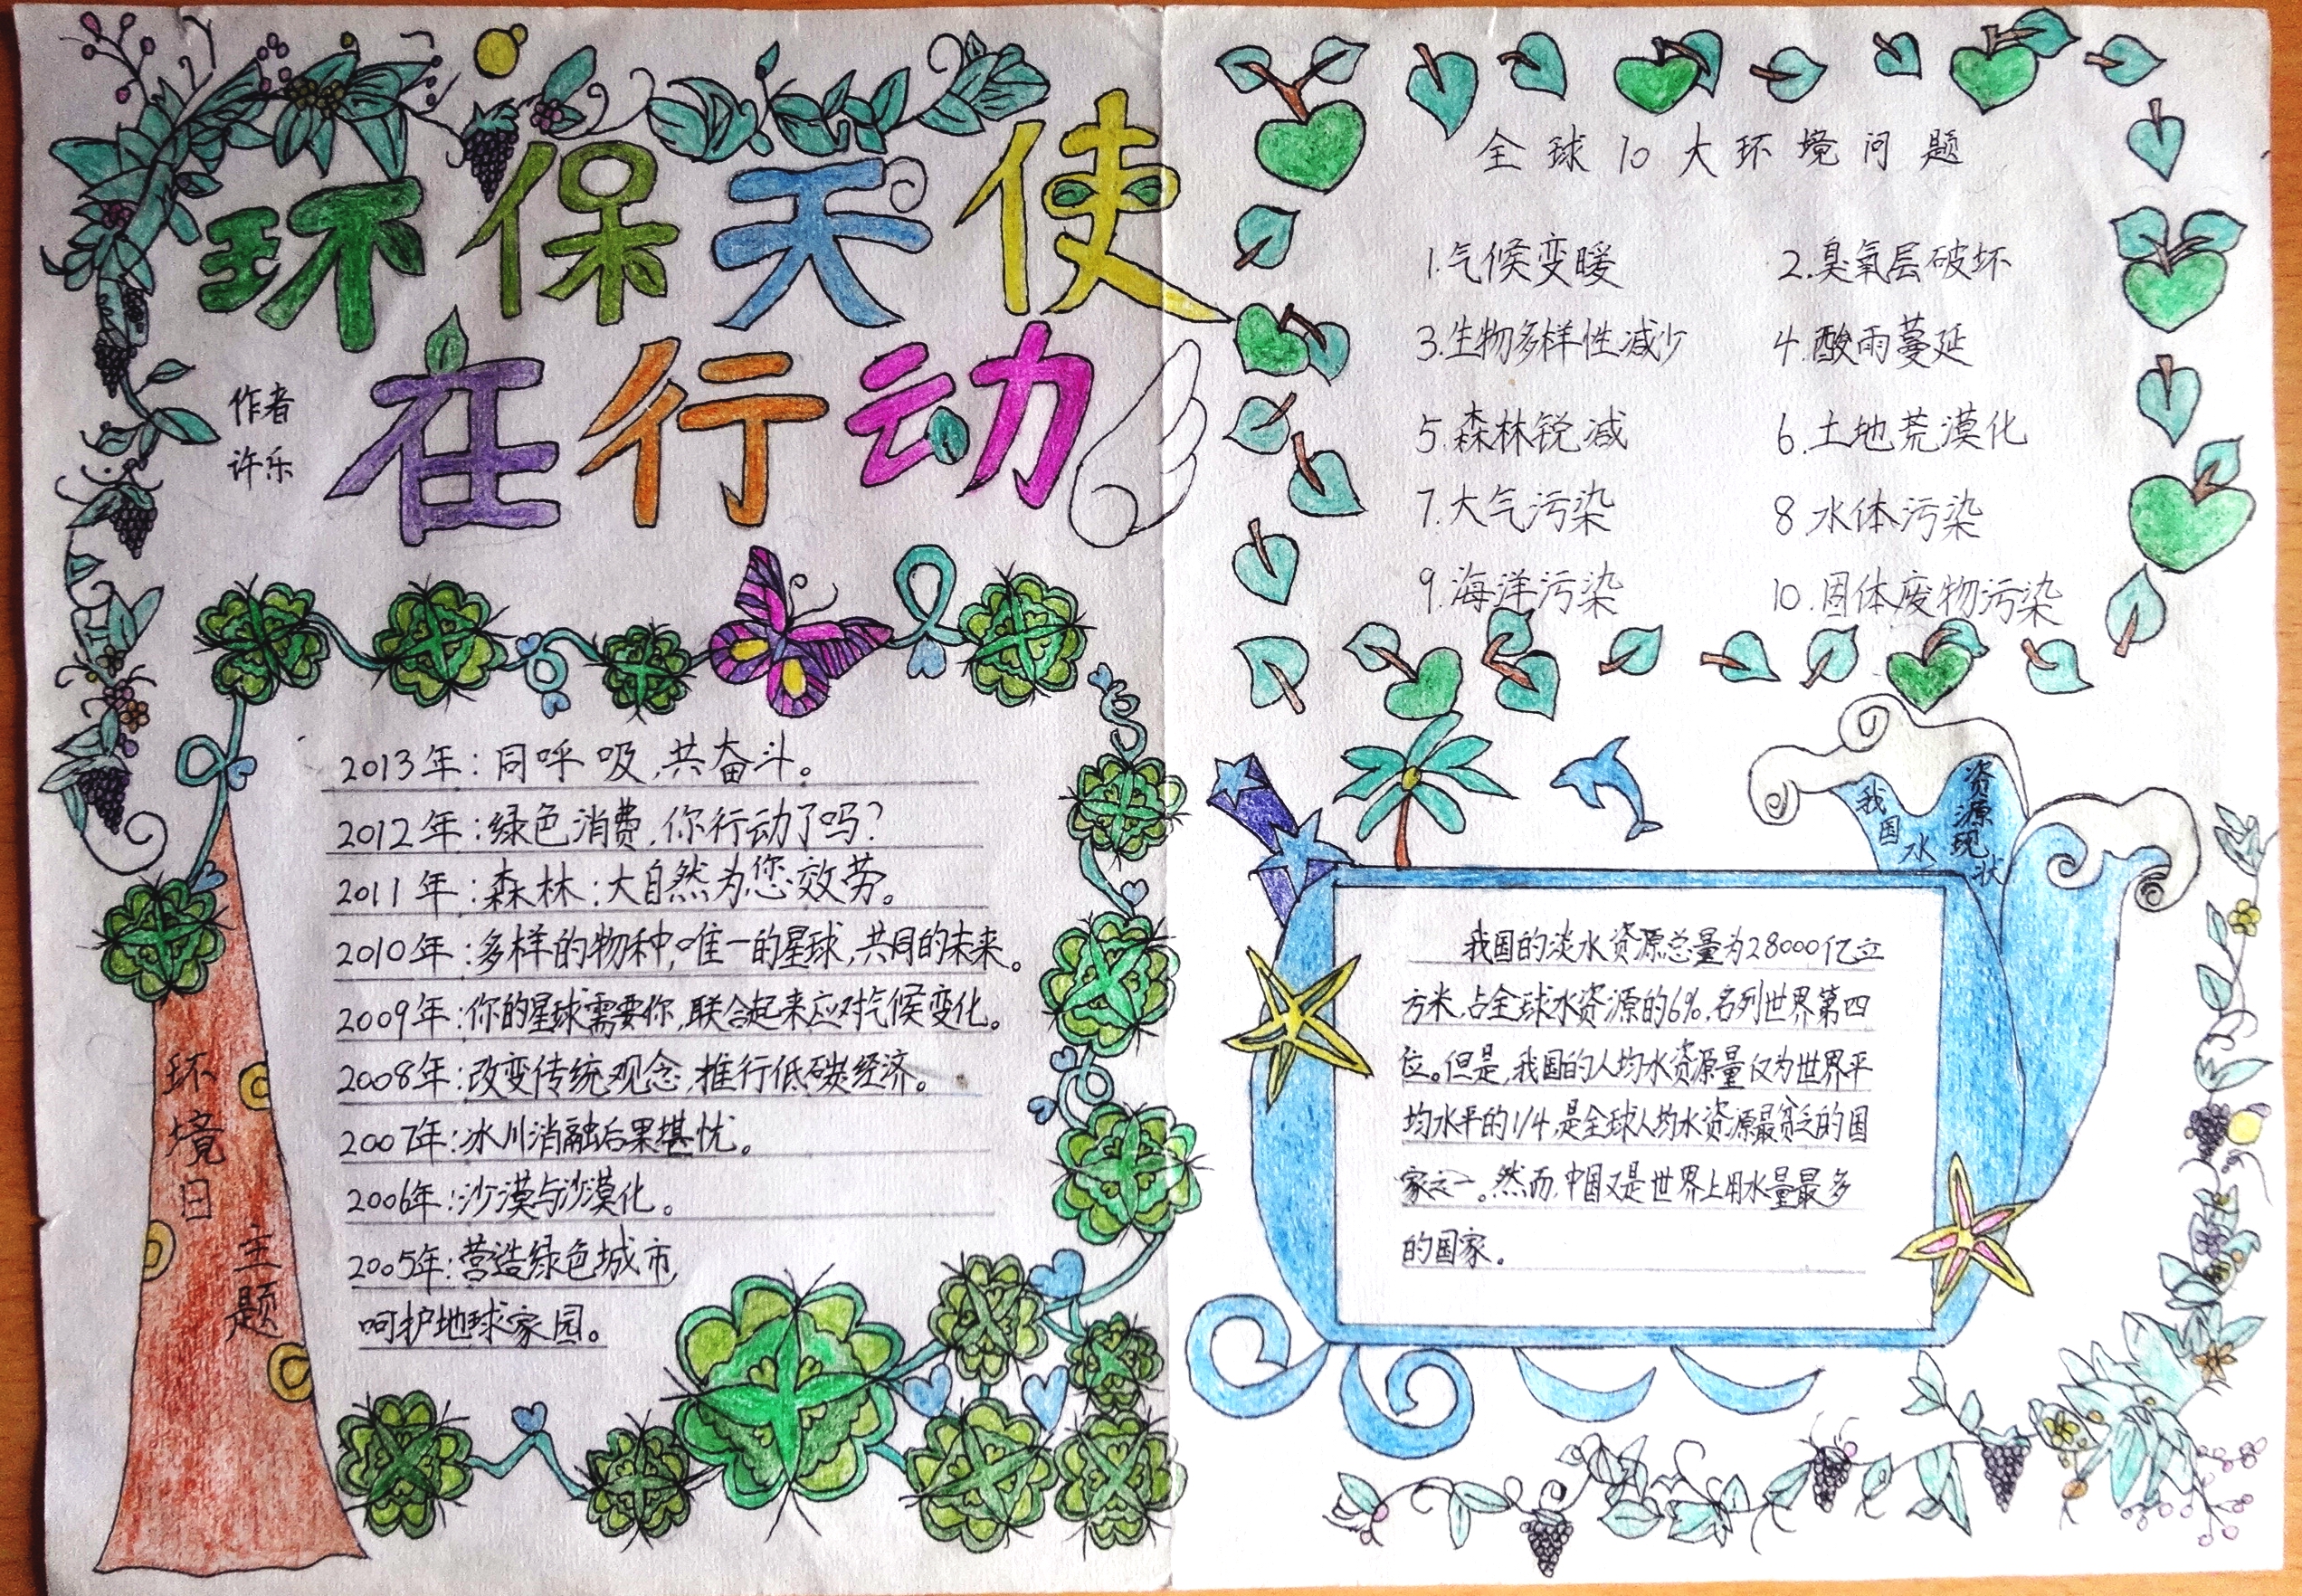 环保天使
在行动
作者
许乐
环境日
主题
2013年:同呼吸,共奋斗。
2012年:绿色消费,你行动了吗?
2011年:森林:大自然为您效劳。
2010年:多样的物种,唯一的星球,共同的未来。
2009年:你的星球需要你,联合起来应对气候变化。
2008年:改变传统观念,推行低碳经济。
2007年:冰川消融后果堪忧。
2006年:沙漠与沙漠化。
2005年:营造绿色城市,
呵护地球家园。
全球10大环境问题
1.气候变暖 2.臭氧层破坏
3.生物多样性减少 4.酸雨蔓延
5.森林锐减 6.土地荒漠化
7.大气污染 8.水体污染
9.海洋污染 10.固体废物污染
我国水
资源现状
我国的淡水资源总量为28000亿立
方米,占全球水资源的6%,名列世界第四
位。但是,我国的人均水资源量仅为世界平
均水平的1/4,是全球人均水资源最贫乏的国
家之一。然而,中国又是世界上用水量最多
的国家。